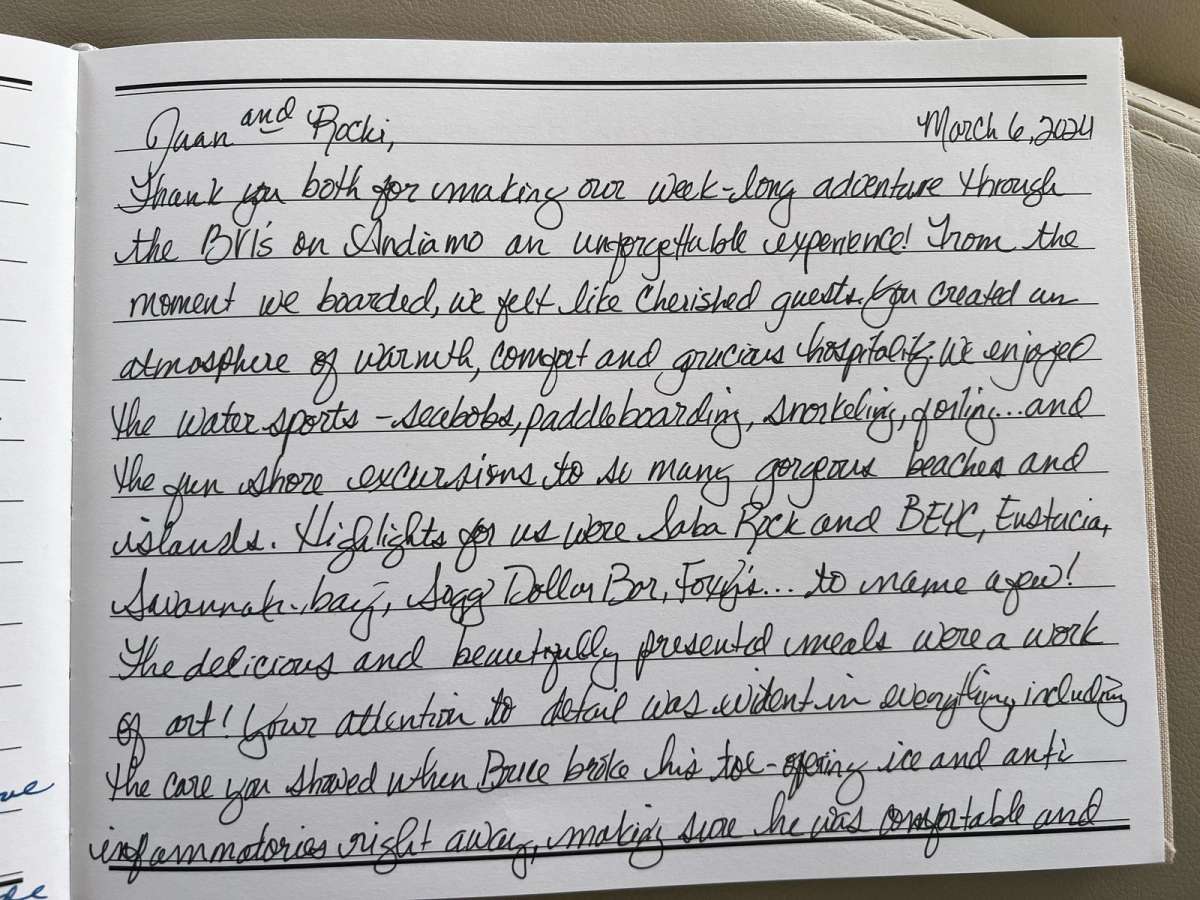 Juan and Rocki,
March 6, 2024
Thank you both for making our week-long adventure through
the BVI's on Andiamo an unforgettable experience! From the
moment we boarded, we felt like cherished guests. You created an
atmosphere of warmth, comfort and gracious hospitality. We enjoyed
the water sports - seabobs, paddleboarding, snorkeling, foiling... and
the fun shore excursions to so many gorgeous beaches and
islands. Highlights for us were Saba Rock and BEYC, Eustacia,
Savannah bay, Soggy Dollar Bar, Foxy's... to name a few!
The delicious and beautifully presented meals were a work
of art! Your attention to detail was evident in everything, including
the care you showed when Bruce broke his toe - offering ice and anti
inflammatories right away, making sure he was comfortable and